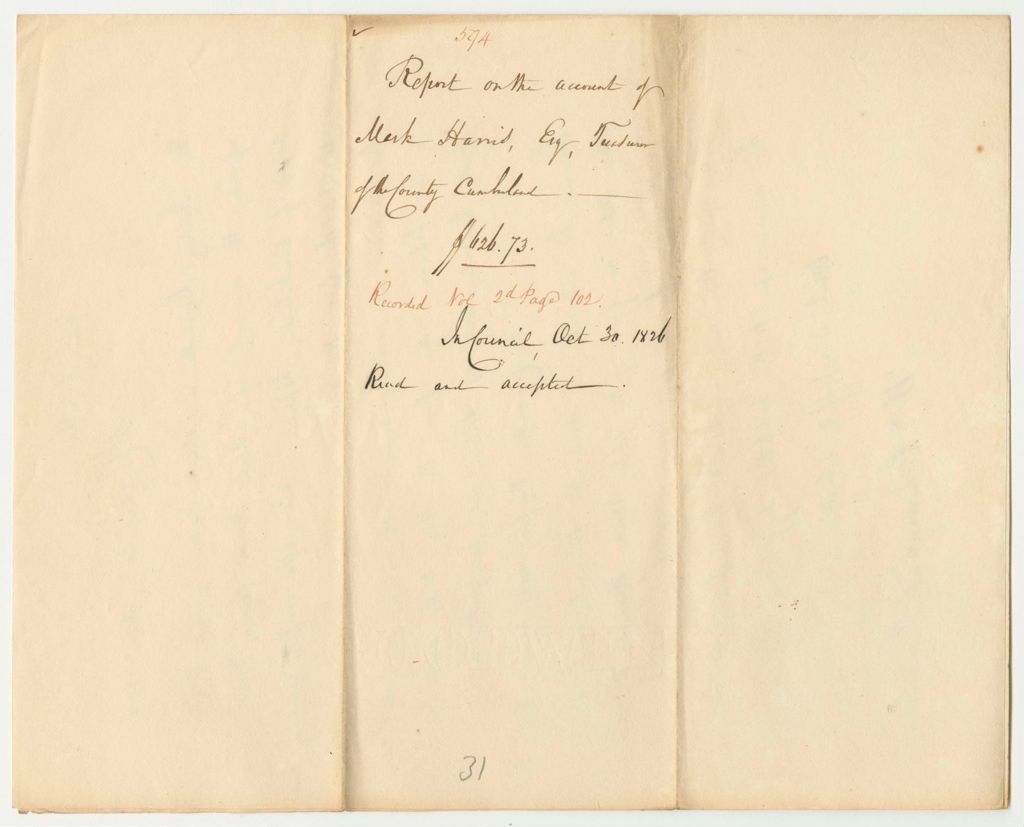 594
Report on the account of
Mark Harris, Esq, Treasurer
of the County Cumberland. —
$626.73.
Recorded Vol 2d Page 102.
In Council, Oct 30. 1826
Read and accepted.
31